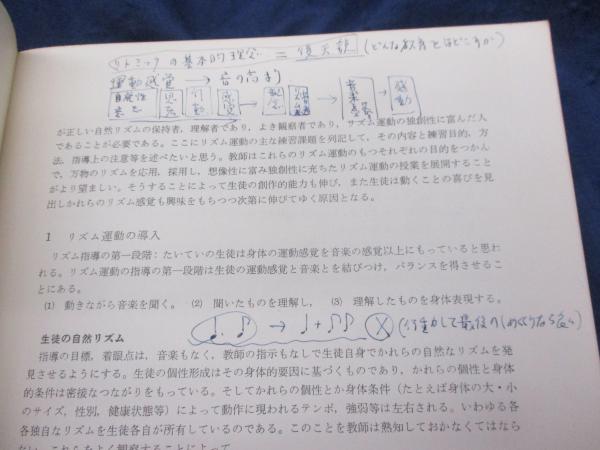 リトミックの基本的理念 = (どんな教育とはどこが)
運動感覚 → 音の高まり
自発性 思 行動 感覚 → → 音楽 → 感動
が正しい自然リズムの保持者，理解者であり，よき観察者であり，リズム運動の独創性に富んだ人
であることが必要である。ここにリズム運動の主な練習課題を列記して，その内容と練習目的，方
法，指導上の注意等を述べたいと思う。教師はこれらのリズム運動のもつそれぞれの目的をつかん
で，万物のリズムを応用，採用し，想像性に富み独創性に充ちたリズム運動の授業を展開すること
がより望ましい。そうすることによって生徒の創作的能力も伸び，また生徒は動くことの喜びを見
出しかれらのリズム感覚も興味をもちつつ次第に伸びてゆく原因となる。
1 リズム運動の導入
リズム指導の第一段階：たいていの生徒は身体の運動感覚を音楽の感覚以上にもっていると思わ
れる。リズム運動の指導の第一段階は生徒の運動感覚と音楽とを結びつけ，バランスを得させるこ
とにある。
(1) 動きながら音楽を聞く。 (2) 聞いたものを理解し， (3) 理解したものを身体表現する。
♩. ♪ → ♩+♪♪ X
生徒の自然リズム
指導の目標，着眼点は，音楽もなく，教師の指示もなしで生徒自身でかれらの自然なリズムを発
見させるようにする。生徒の個性形成はその身体的要因に基づくものであり，かれらの個性と身体
的条件は密接なつながりをもっている。そしてかれらの個性とか身体条件（たとえば身体の大・小
のサイズ，性別，健康状態等）によって動作に現われるテンポ，強弱等は左右される。いわゆる各
各独自なリズムを生徒各自が所有しているのである。このことを教師は熟知しておかなくてはなら
ない。これらをよく観察することによって